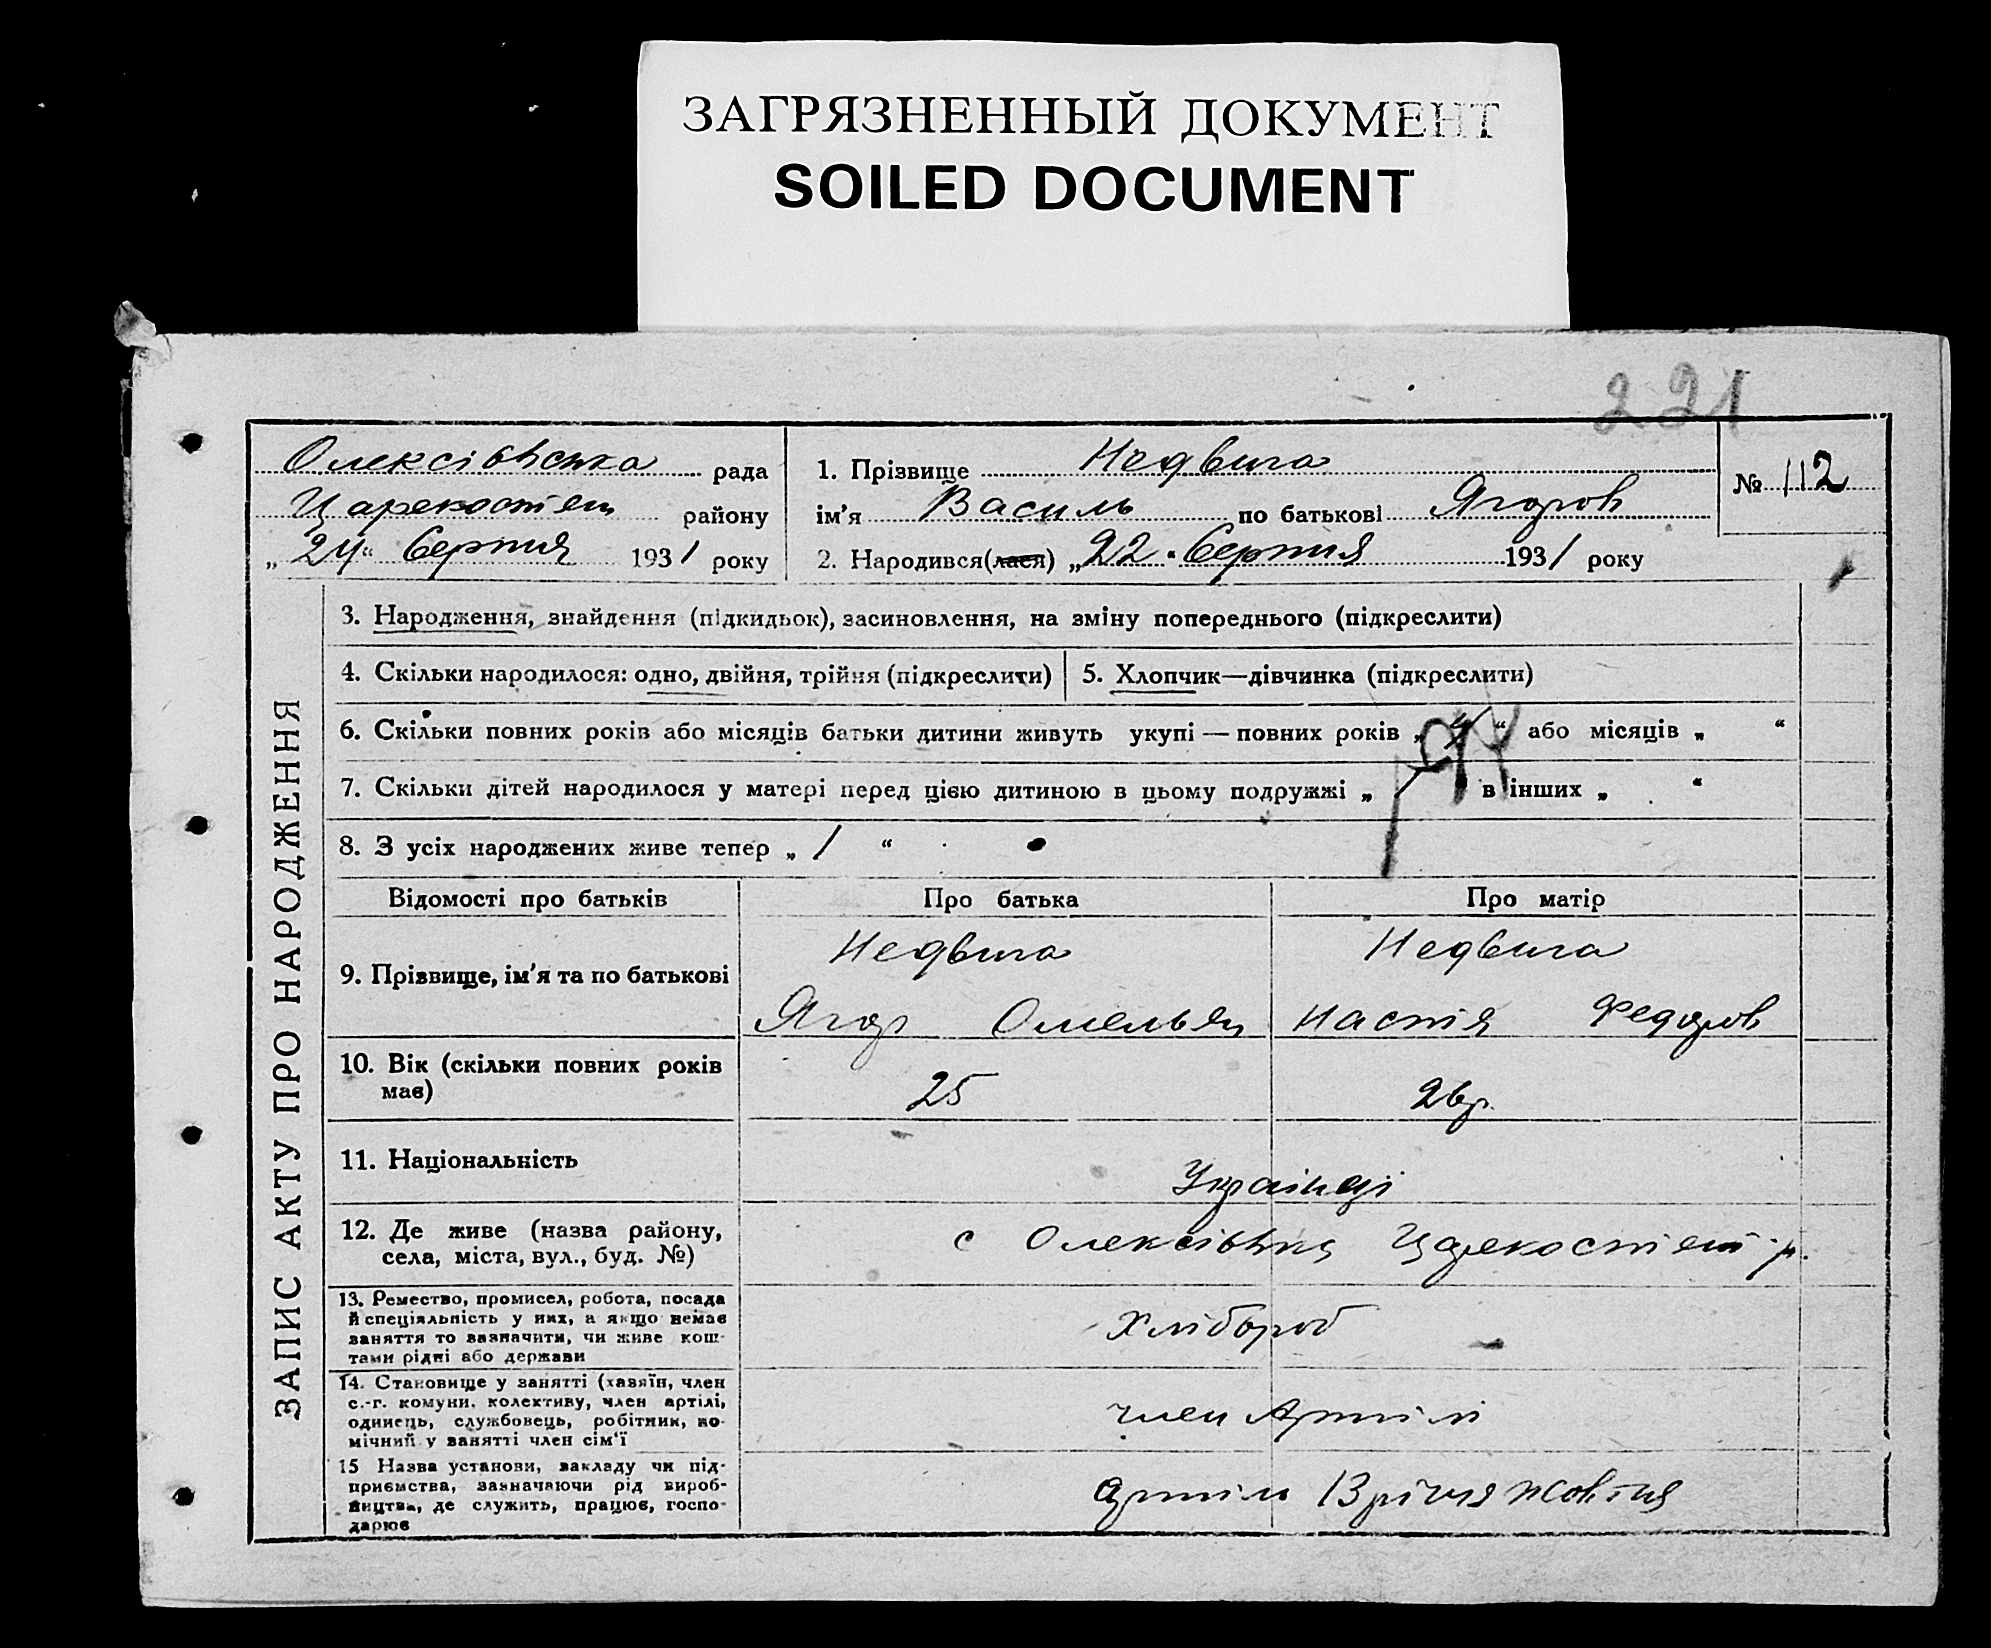 ЗАГРЯЗНЕННЫЙ ДОКУМЕНТ
SOILED DOCUMENT
221
Олексівська рада
Царекостян району
„24“ Серпня 1931 року
1. Прізвище Недвига
ім’я Василь по батькові Ягоров
№ 112
2. Народився(лася) „22“ Серпня 1931 року
ЗАПИС АКТУ ПРО НАРОДЖЕННЯ
3. Народження, знайдення (підкидьок), засиновлення, на зміну попереднього (підкреслити)
4. Скільки народилося: одно, двійня, трійня (підкреслити)
5. Хлопчик—дівчинка (підкреслити)
6. Скільки повних років або місяців батьки дитини живуть укупі — повних років „ “ або місяців „ “
7. Скільки дітей народилося у матері перед цією дитиною в цьому подружжі „ в інших „ “
8. З усіх народжених живе тепер „ 1 “
Відомості про батьків
Про батька
Про матір
9. Прізвище, ім’я та по батькові
Недвига
Ягор Омельян
Недвига
Настя Федоров
10. Вік (скільки повних років
має)
25
26 р.
11. Національність
Українці
12. Де живе (назва району,
села, міста, вул., буд. №)
с Олексівка Царекостян р.
13. Ремество, промисел, робота, посада
й спеціяльність у них, а якщо немає
заняття то зазначити, чи живе кош-
тами рідні або держави
Хлібороб
14. Становище у занятті (хазяїн, член
с.-г. комуни, колективу, член артілі,
одинець, службовець, робітник, по-
мічний у занятті член сім’ї
член Артілі
15 Назва установи, закладу чи під-
приємства, зазначаючи рід вироб-
ництва, де служить, працює, госпо-
дарює
Артіль 13 річчя жовтня